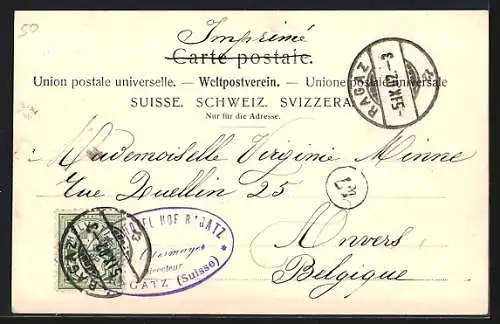 50
Imprimé
Carte postale.
Union postale universelle. — Weltpostverein. — Unione postale universale
SUISSE. SCHWEIZ. SVIZZERA.
Nur für die Adresse.
RAGAZ
Mademoiselle Virginie Minne
Rue Quellin 25
Anvers
Belgique
HOTEL HOF RAGATZ
Directeur
RAGATZ (Suisse)
RAGAZ